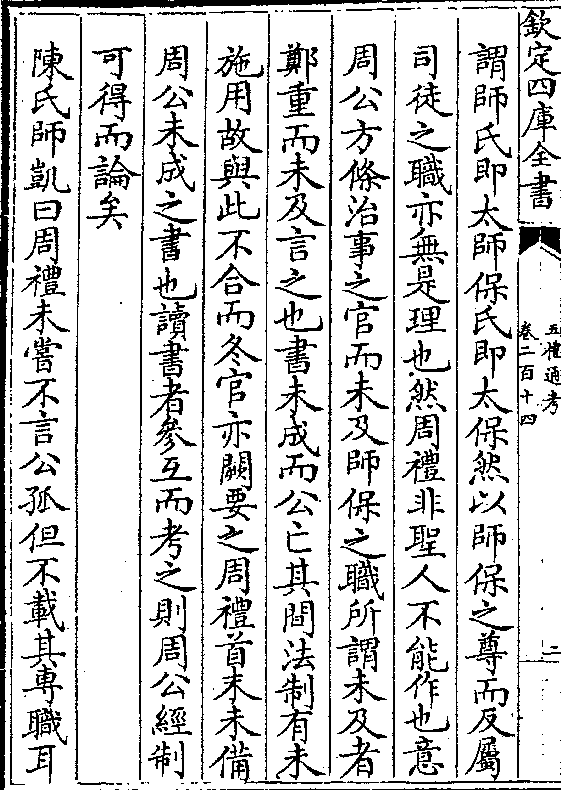 欽定四庫全書
五禮通考
卷二百十四
二
謂師氏即太師保氏即太保然以師保之尊而反屬
司徒之職亦無是理也然周禮非聖人不能作也意
周公方條治事之官而未及師保之職所謂未及者
鄭重而未及言之也書未成而公亡其間法制有未
施用故與此不合而冬官亦闕要之周禮首末未備
周公未成之書也讀書者參互而考之則周公經制
可得而論矣
陳氏師凱曰周禮未嘗不言公孤但不載其專職耳